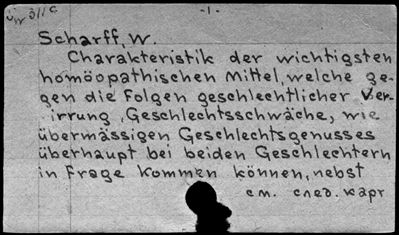 -1-
Scharff, W.
Charakteristik der wichtigsten
homöopathischen Mittel, welche ge-
gen die Folgen geschlechtlicher Ver-
irrung, Geschlechtsschwäche, wie
übermässigen Geschlechtsgenusses
überhaupt bei beiden Geschlechtern
in Frage kommen können, nebst
см. след. карт